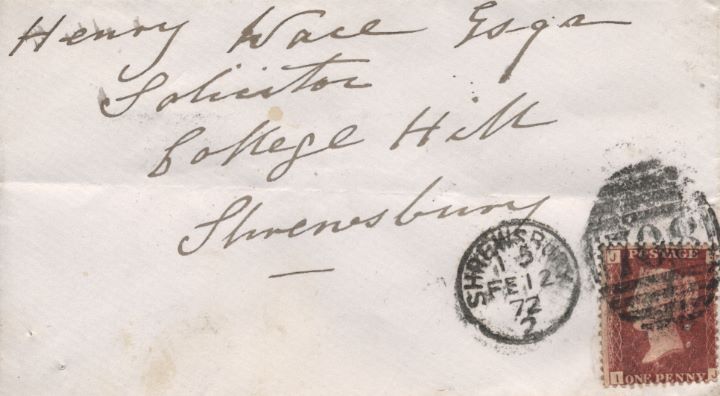 Henry Wace Esqr
Solicitor
College Hill
Shrewsbury
SHREWSBURY
FE 12
72
2
708
J POSTAGE I
I ONE PENNY J